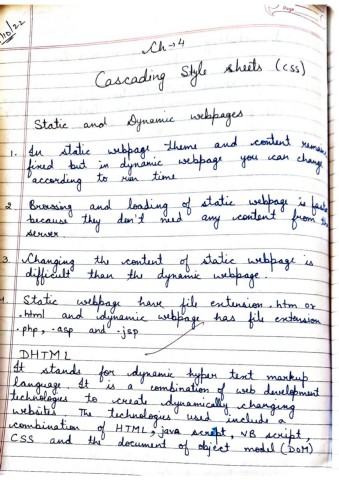 /10/22
Page
Ch → 4
Cascading Style sheets (CSS)
Static and Dynamic webpages
1. In static webpage theme and content remains
fixed but in dynamic webpage you can change
according to run time
2 Browsing and loading of static webpage is faster
because they don't need any content from the
server
3. Changing the content of static webpage is
difficult than the dynamic webpage.
4. Static webpage have file extension .htm or
.html and dynamic webpage has file extension
.php, .asp and .jsp
DHTML
It stands for dynamic hyper text markup
language. It is a combination of web development
technologies to create dynamically changing
websites. The technologies used include a
combination of HTML, java script, VB script,
CSS and the document of object model (DOM)